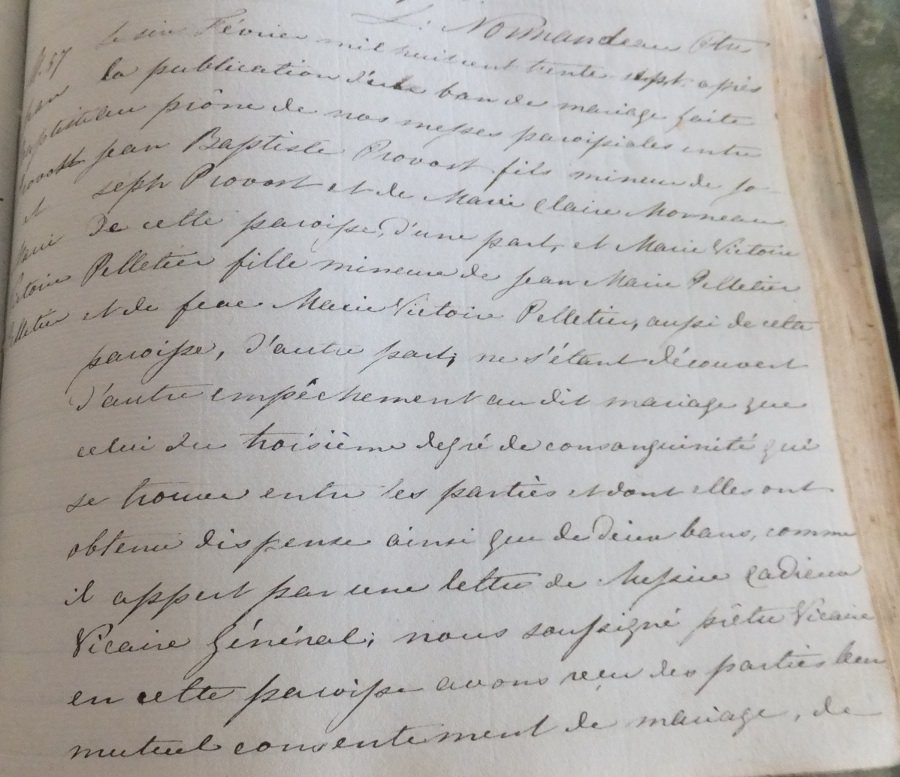 L. Normandeau Ptre
Le six Février mil huit cent trente sept après
la publication d'un ban de mariage faite
au prône de nos messes paroissiales entre
Jean Baptiste Provost fils mineur de Jo-
seph Provost et de Marie Claire Morneau
de cette paroisse, d'une part, et Marie Victoire
Pelletier fille mineure de Jean Marie Pelletier
et de feue Marie Victoire Pelletier, aussi de cette
paroisse, d'autre part; ne s'étant découvert
d'autre empêchement au dit mariage que
celui du troisième degré de consanguinité qui
se trouve entre les parties et dont elles ont
obtenu dispense ainsi que de deux bans, comme
il appert par une lettre de Messire Cadieux
Vicaire Général; nous soussigné prêtre Vicaire
en cette paroisse avons reçu des parties leur
mutuel consentement de mariage, de
57
Baptiste
Provost
et
Marie
Victoire
Pelletier